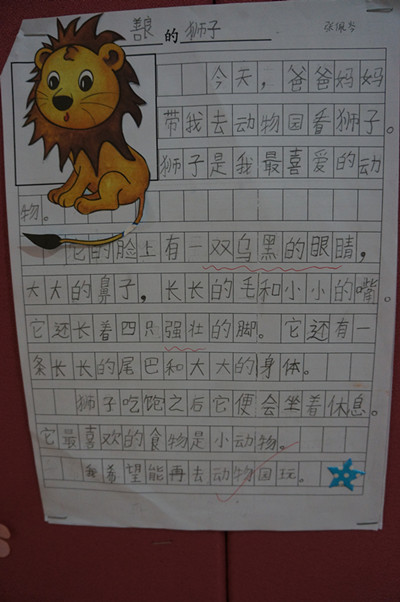 善良的狮子
张佩岑
今天，爸爸妈妈
带我去动物园看狮子。
狮子是我最喜爱的动
物。
它的脸上有一双乌黑的眼睛，
大大的鼻子，长长的毛和小小的嘴。
它还长着四只强壮的脚。它还有一
条长长的尾巴和大大的身体。
狮子吃饱之后它便会坐着休息。
它最喜欢的食物是小动物。
我希望能再去动物园玩。